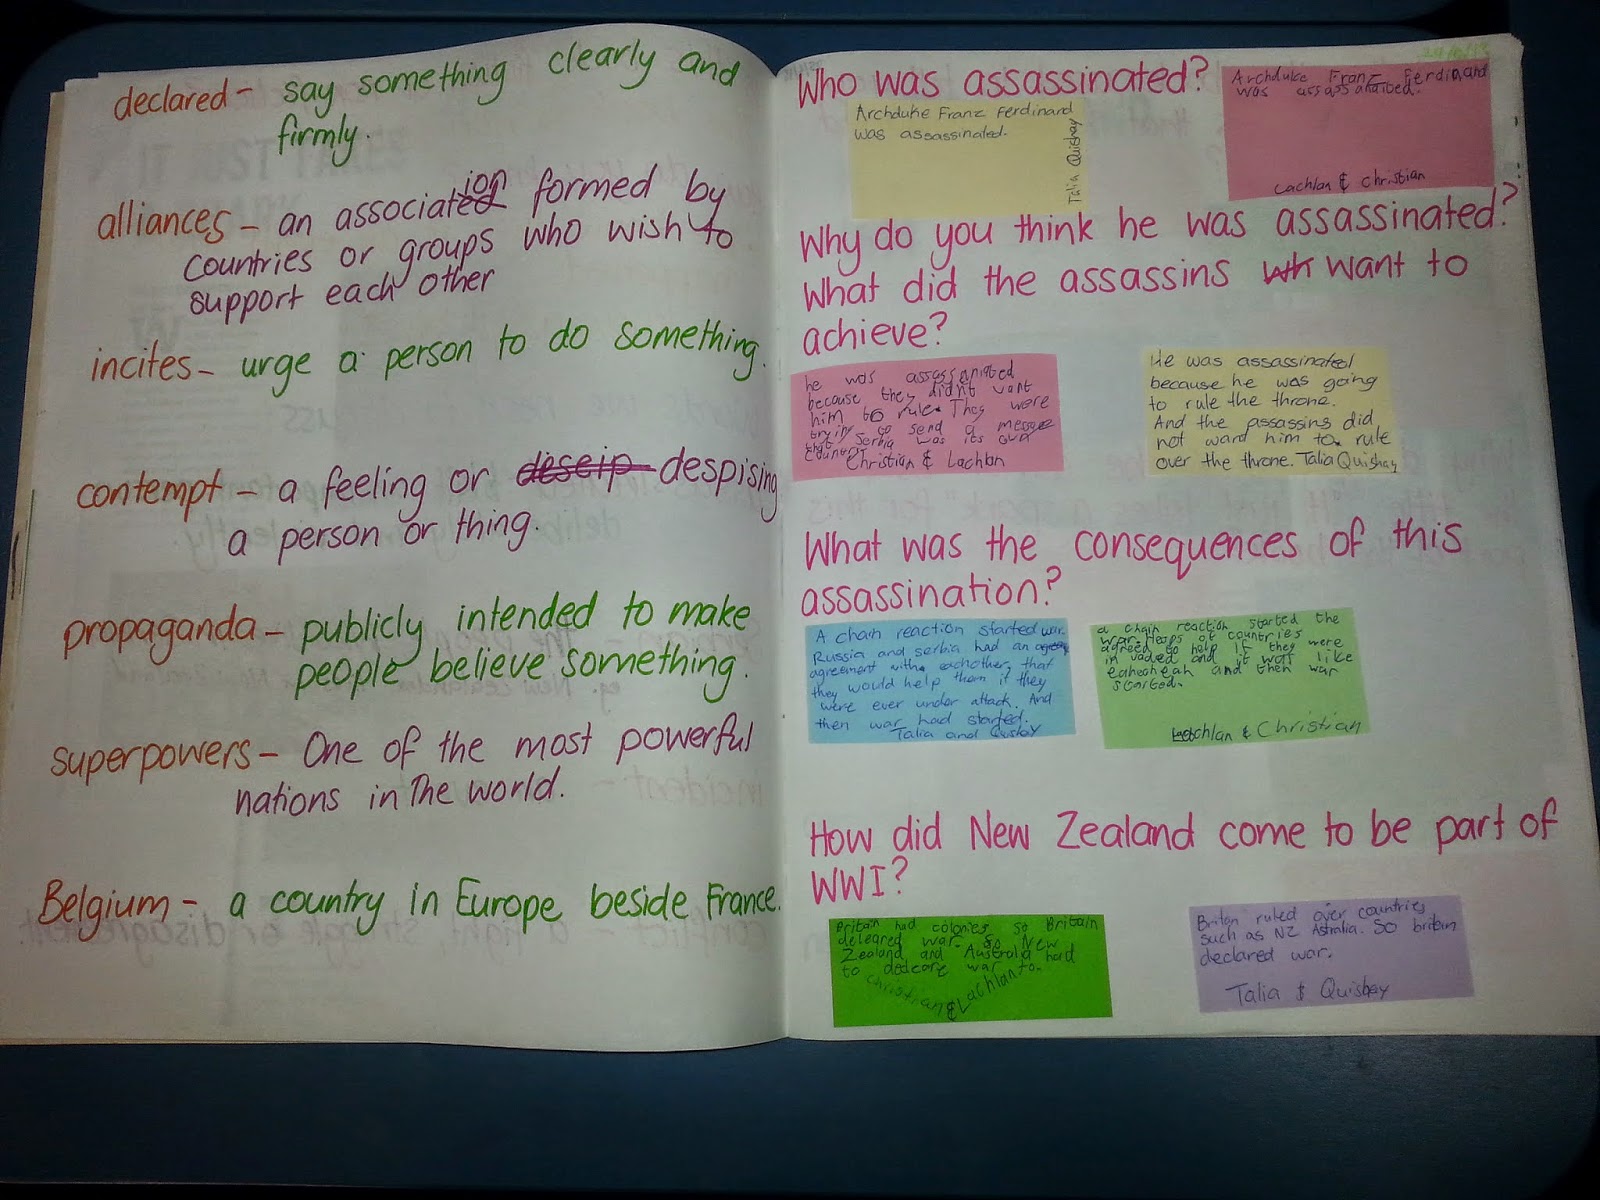 declared - say something clearly and
firmly.
alliances - an associated ion formed by
countries or groups who wish to
support each other
incites - urge a person to do something.
contempt - a feeling or deseip despising
a person or thing.
propaganda - publicly intended to make
people believe something.
superpowers - One of the most powerful
nations in the world.
Belgium - a country in Europe beside France.
Who was assassinated?
Archduke Franz Ferdinand
was assassinated.
Talia Quishay
Archduke Franz Ferdinand
was
Lachlan & Christian
Why do you think he was assassinated?
What did the assassins wh want to
achieve?
he was
because they didnt
him to rule. They were
trying to send a
that Serbia was its own
Christian & Lachlan
He was assassinated
because he was going
to rule the throne.
And the assassins did
not want him to rule
over the throne. Talia Quishay
What was the consequences of this
assassination?
A chain reaction started war.
Russia and serbia had an
agreement with eachother, that
they would help them if they
were ever under attack. And
then war had started.
Talia and Quishay
a chain reaction started the
war. Heaps of countries
agreed to help if they were
in vaded and it was like
and then war
started.
Lachlan & Christian
How did New Zealand come to be part of
WWI?
Britain had colonies so Britain
war. so New
Zealand and Australia had
to war to.
Christian & Lachlan
ruled over countries
such as NZ So
declared war.
Talia & Quishay